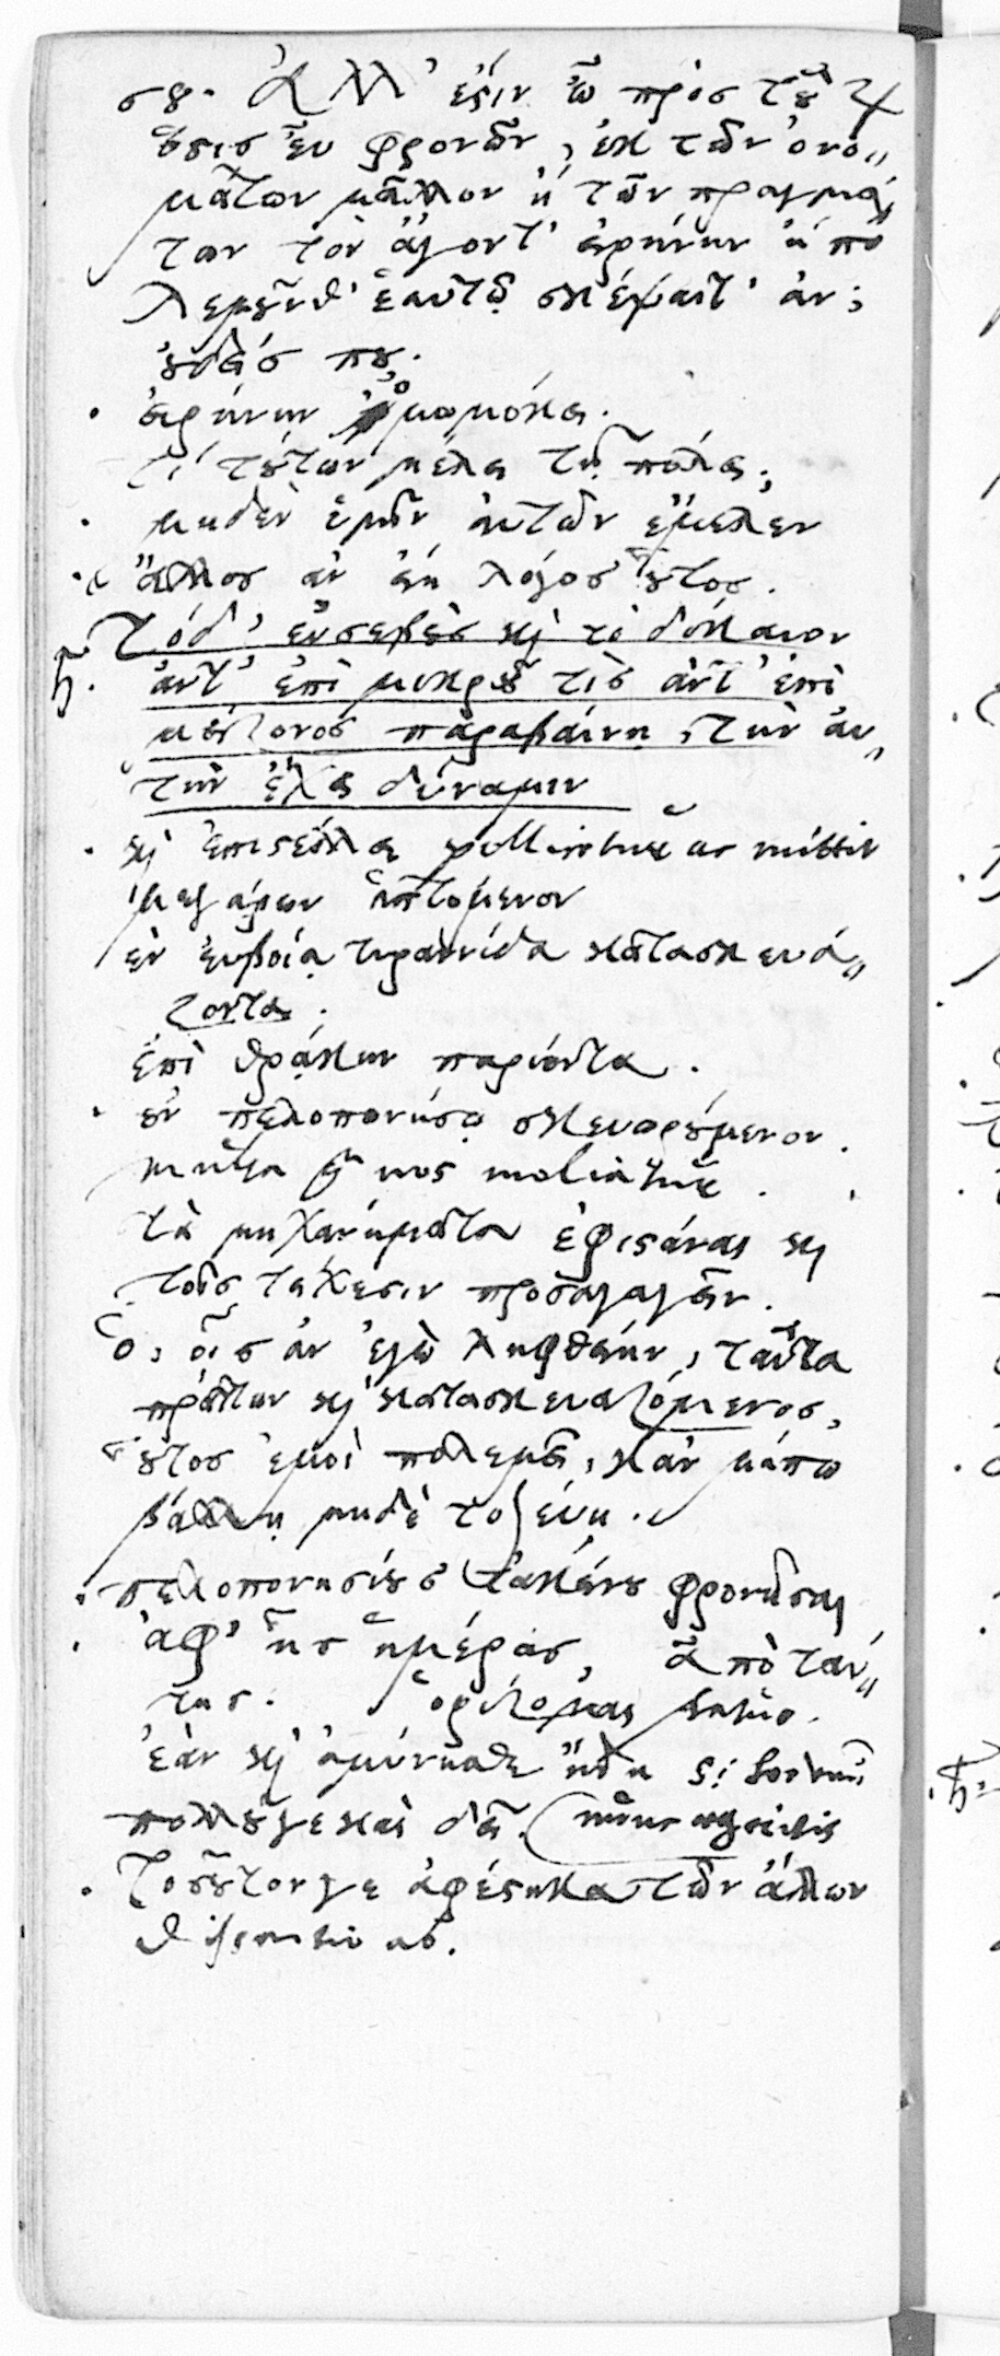 σ8. Ἀλλ' ἔστιν ὦ πρὸς τοῦ
ὅστις εὖ φρονῶν, ἐκ τῶν ὀνο„
μάτων μᾶλλον ἢ τῶν πραγμά„
των τὸν ἄγοντ' εἰρήνην ἢ πο
λεμοῦνθ' ἑαυτῷ σκέψαιτ' ἄν;
οὐδείς που.
· εἰρήνην ὀμωμόκει.
τί τούτων μέλει τῇ πόλει;
· μηδὲν ὑμῶν αὐτῶν ἔμελεν
· ἄλλος ἂν εἴη λόγος οὗτος.
Τόδ' εὐσεβὲς καὶ τὸ δίκαιον
ἄντ' ἐπὶ μικροῦ τις ἄντ' ἐπὶ
μείζονος παραβαίνῃ, τὴν αὐ„
τὴν ἔχει δύναμιν
· καὶ ἐπιστέλλει
μεγάρων ἁπτόμενον
ἐν εὐβοίᾳ τυραννίδα κατασκευά„
ζοντα.
ἐπὶ θράκην παριόντα.
· ἐν πελοποννήσῳ σκευωρούμενον.
τὰ μηχανήματα ἐφιστάναι καὶ
τοῖς τείχεσιν προσαγαγεῖν.
ὁ, οἷς ἂν ἐγὼ ληφθείην, ταῦτα
πράττων καὶ κατασκευαζόμενος,
οὗτος ἐμοὶ πολεμεῖ, κἂν μήπω
βάλλῃ μηδὲ τοξεύῃ.
· πελοποννησίους τἀκείνου φρονῆσαι
· ἀφ' ἧς ἡμέρας, ἀπὸ ταύ„
της. ὁρίζομαι
ἐὰν καὶ ἀμύνησθε ἤδη
πολλοῦ γε καὶ δεῖ.
· Τοσοῦτόν γε ἀφέστηκα τῶν ἄλλων